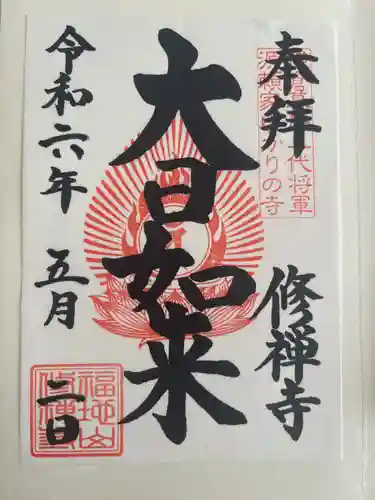 奉拝
代将軍
源頼家
りの寺
修禅寺
大日如来
令和六年
五月
二日
福地山
修禅寺